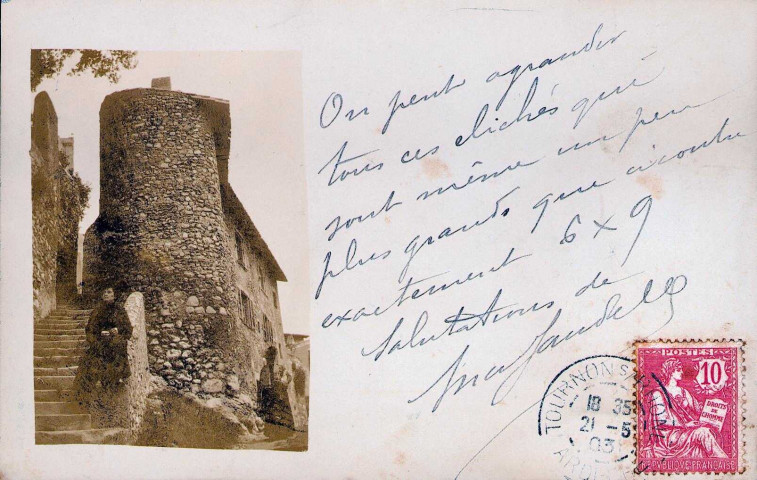 On peut agrandir
tous ces clichés qui
sont même un peu
plus grands que
exactement 6 x 9
Salutations de
POSTES
10
DROITS DE L'HOMME
REPUBLIQUE FRANÇAISE
TOURNON S/ RHONE
18 35
21 -5
03
ARD